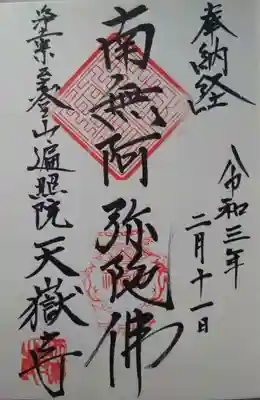 奉納経
令和三年
二月十一日
南無阿弥陀佛
至登山遍照院天嶽寺